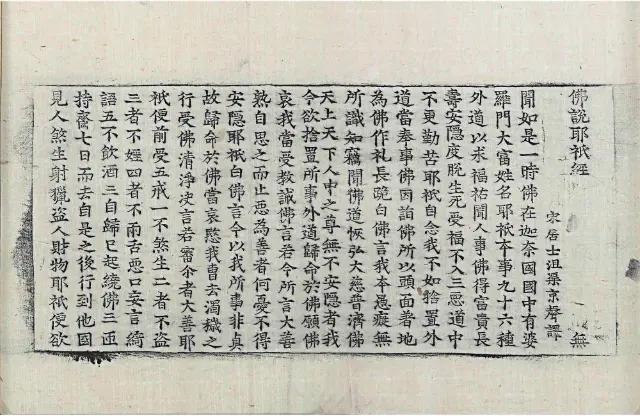 佛說耶祇經
宋居士沮渠京聲譯 無
聞如是一時佛在迦奈國國中有婆
羅門大富姓名耶祇本事九十六種
外道以求福祐聞人事佛得富貴長
壽安隱度脫生死受福不入三惡道中
不更勤苦耶祇自念我不如捨置外
道當奉事佛因詣佛所以頭面著地
為佛作礼長跪白佛言我本愚癡無
所識知竊聞佛道恢弘大慈普濟佛
天上天下人中之尊無不安隱者我
今欲捨置所事外道歸命於佛願佛
哀我當受教誡佛言若今所言大善
熟自思之而止惡為善者何憂不得
安隱耶祇白佛言今以我所事非真
故歸命於佛當哀愍我曹去濁穢之
行受佛清淨决言若審尒者大善耶
祇便前受五戒一不煞生二者不盜
三者不婬四者不兩舌惡口妄言綺
語五不飲酒三自歸已起繞佛三匝
持齋七日而去自是之後行到他國
見人煞生射獵盜人財物耶祇便欲